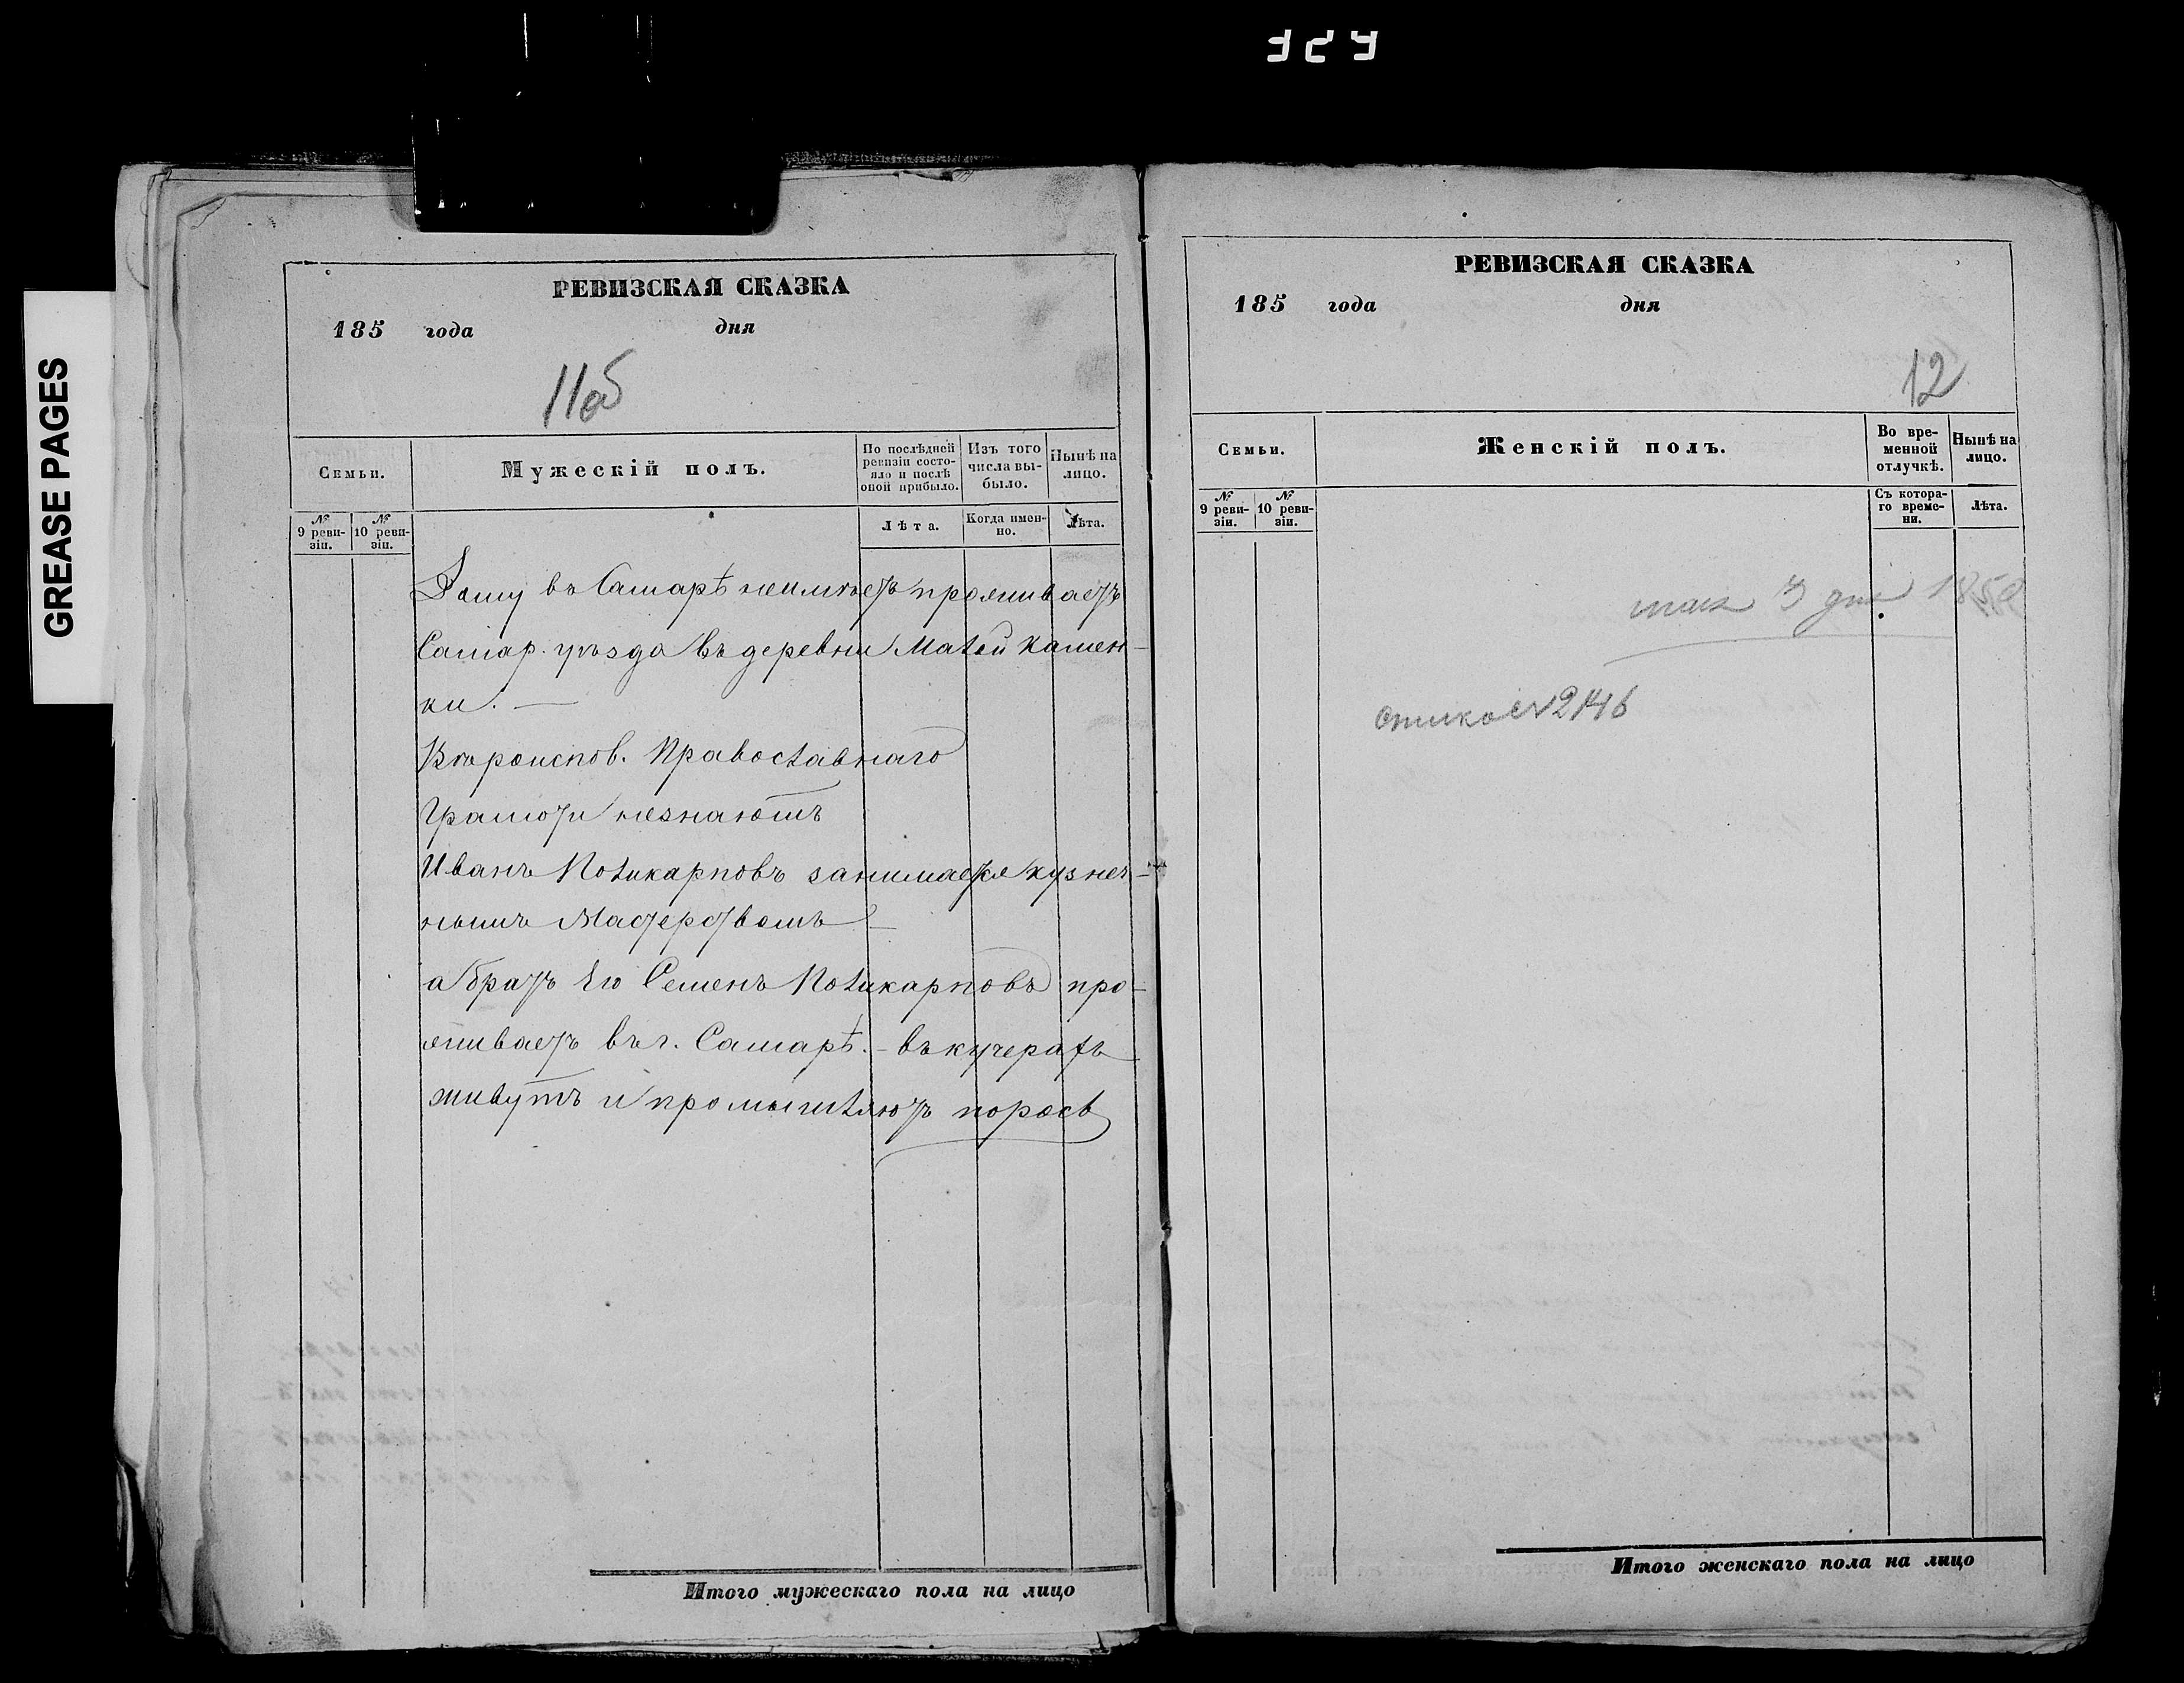 324
GREASE PAGES
РЕВИЗСКАЯ СКАЗКА
185 года дня
11об
Семьи.
Мужескій полъ.
По послѣдней ревизіи состояло и послѣ оной прибыло.
Изъ того числа выбыло.
Нынѣ на лицо.
№ 9 ревизіи.
№ 10 ревизіи.
Лѣта.
Когда именно.
Лѣта.
Дому въ Самарѣ неимѣетъ проживаетъ
Самар. уѣзда въ деревни Малой Камен-
ки. —
Вѣроиспов. Православнаго
Грамоти незнаютъ
Иванъ Поликарповъ занимаетя кузнеч-
нымъ Мастерствомъ —
а братъ Его Семенъ Поликарповъ про-
живаетъ въ г. Самарѣ. – въ кучерахъ
живутъ и промышляютъ порозь
Итого мужескаго пола на лицо
РЕВИЗСКАЯ СКАЗКА
185 года дня
12
Семьи.
Женскій полъ.
Во временной отлучкѣ.
Нынѣ на лицо.
№ 9 ревизіи.
№ 10 ревизіи.
Съ котораго времени.
Лѣта.
мая 3 дня 1850
2146
Итого женскаго пола на лицо